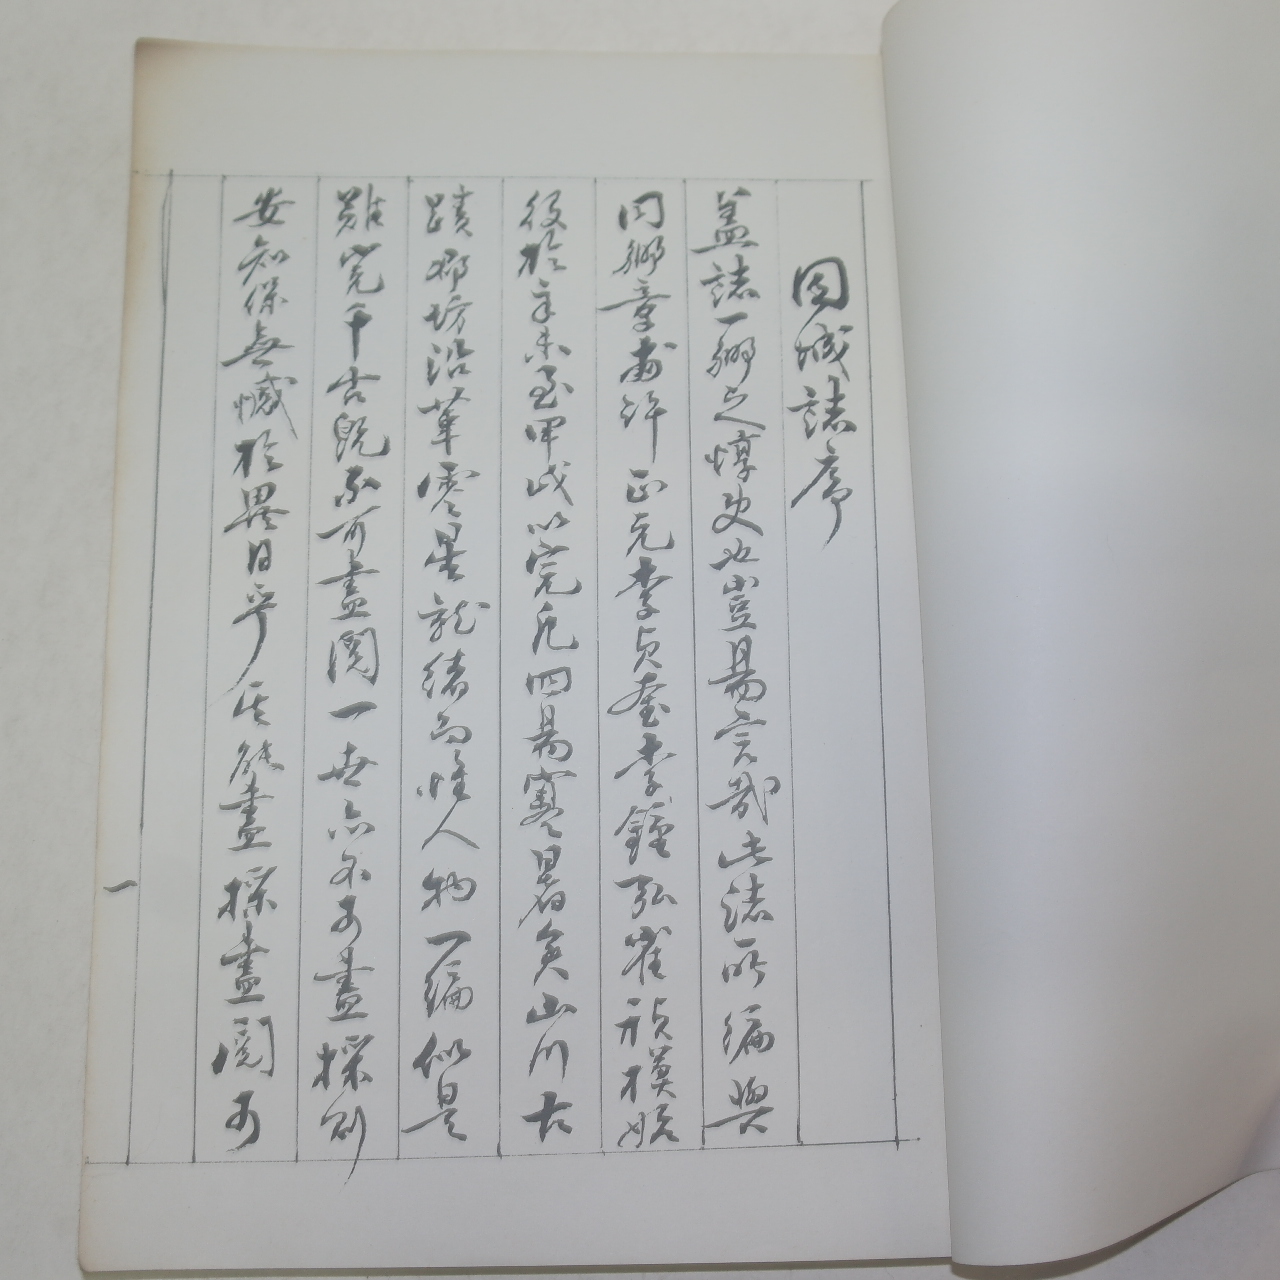 固城誌序
盖誌一鄉之惇史也豈易言哉此誌所編與
同鄉章甫許正元李貞奎李鍾弘崔禎模始
役於辛未至甲戌以完凡四易寒暑矣山川古
蹟鄉坊沿革零星就緒而惟人物一編似是
難完千古旣不可盡閱一世亦不可盡採則
安知保無憾於異日乎其能盡採盡閱可
一